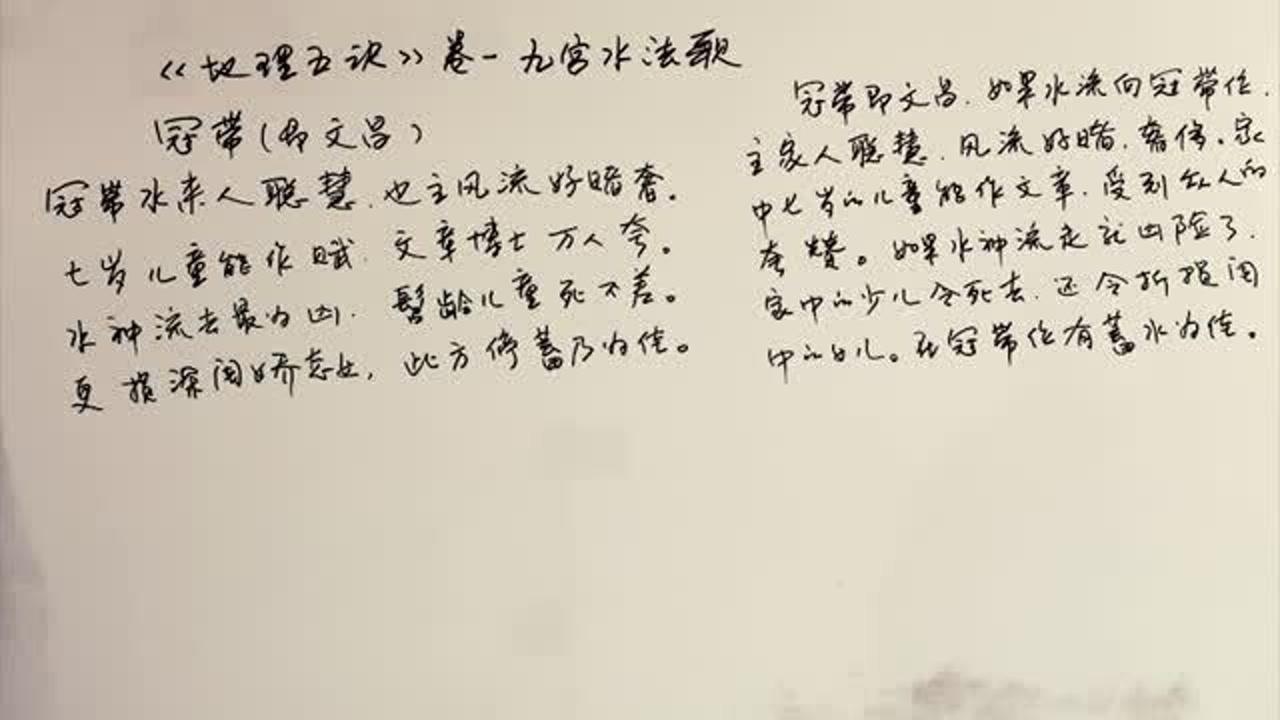 《地理五诀》卷一九宫水法歌
冠带(即文昌)
冠带水来人聪慧.也主风流好暗奢.
七岁儿童能作赋.文章博士万人夸。
水神流去最为凶.髫龄儿童死不差。
更损深闺娇态女,此方停蓄乃为佳。
冠带即文昌.如果水流向冠带位.
主家人聪慧.风流好暗.奢侈.家
中七岁的儿童能作文章.受到众人的
夸赞。如果水神流走就凶险了.
家中的少儿会死去.还会折损闺
中的女儿。在冠带位有蓄水为佳。